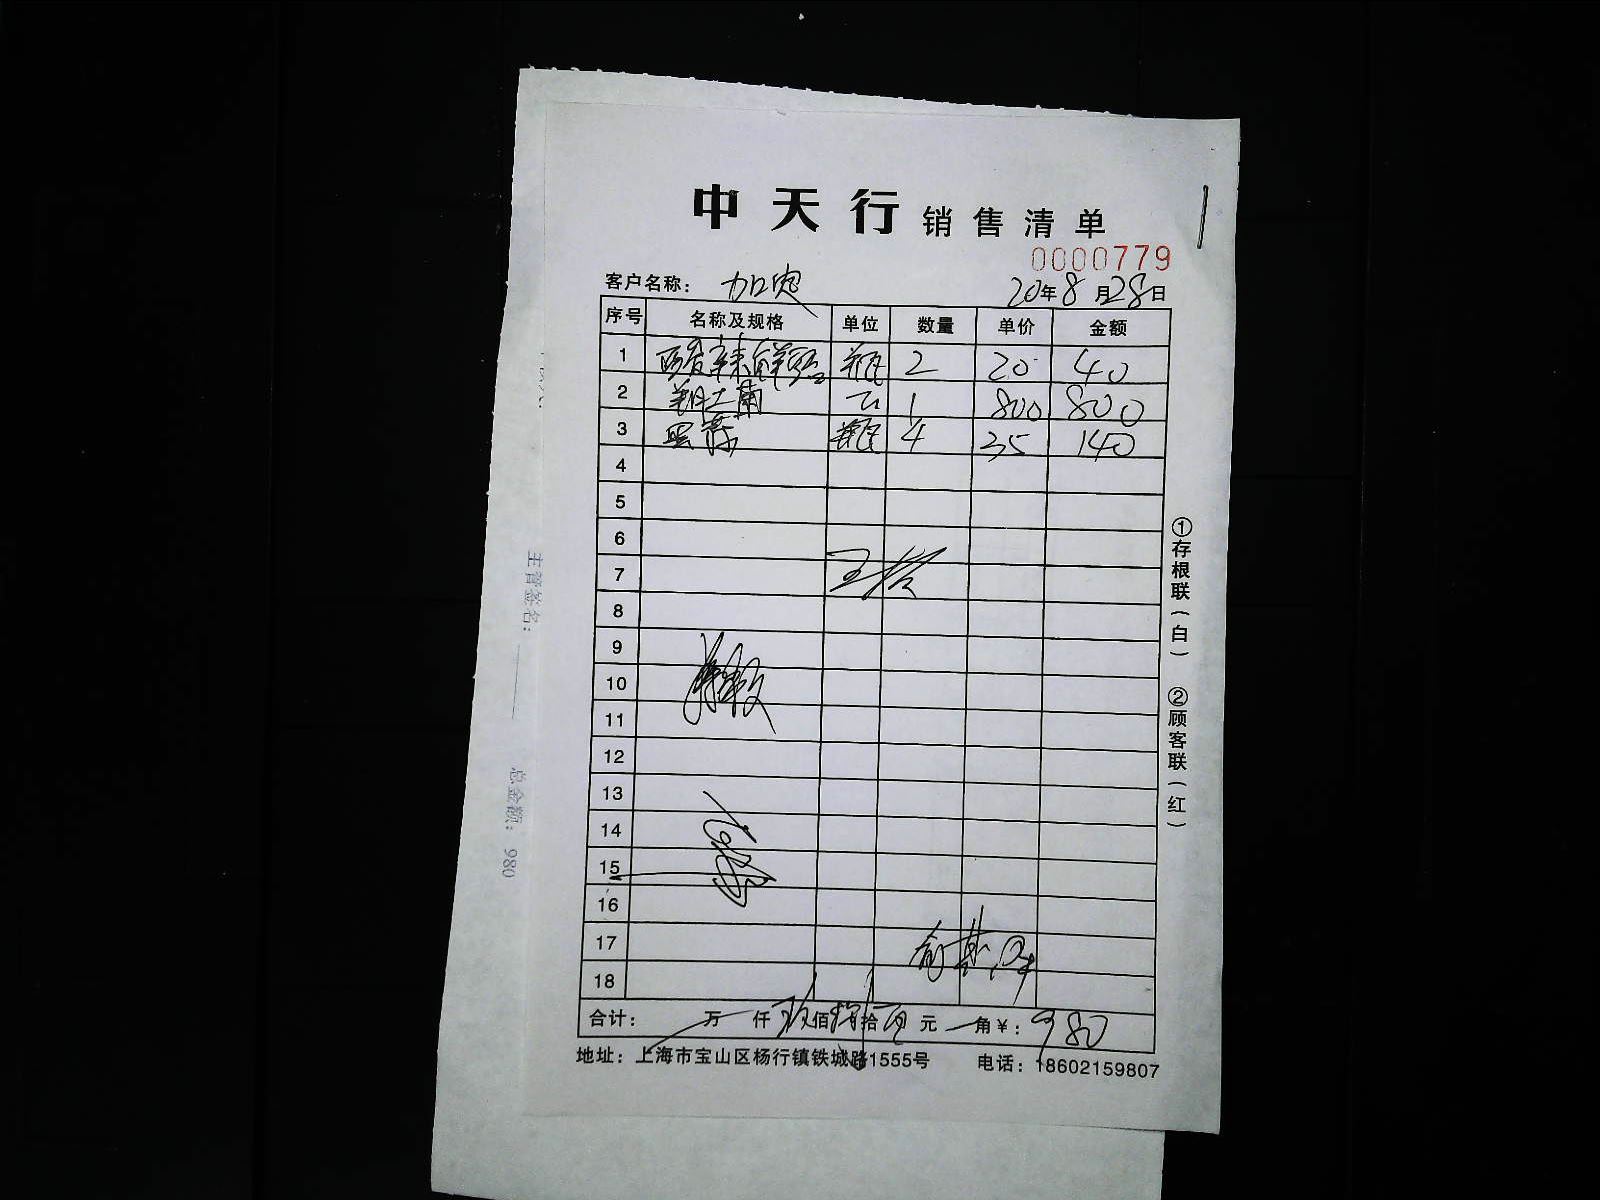 中天行 销售清单
0000779
客户名称： 20年8月28日
序号 名称及规格 单位 数量 单价 金额
1 酸辣鲜露 瓶 2 20 40
2 1 800 800
3 瓶 4 35 140
4
5
6
7
8
9
10
11
12
13
14
15
16
17
18
合计： 万 仟 玖佰捌拾 元 角￥：980
地址：上海市宝山区杨行镇铁城路1555号 电话：18602159807
①存根联（白） ②顾客联（红）
主管签名： 总金额：980